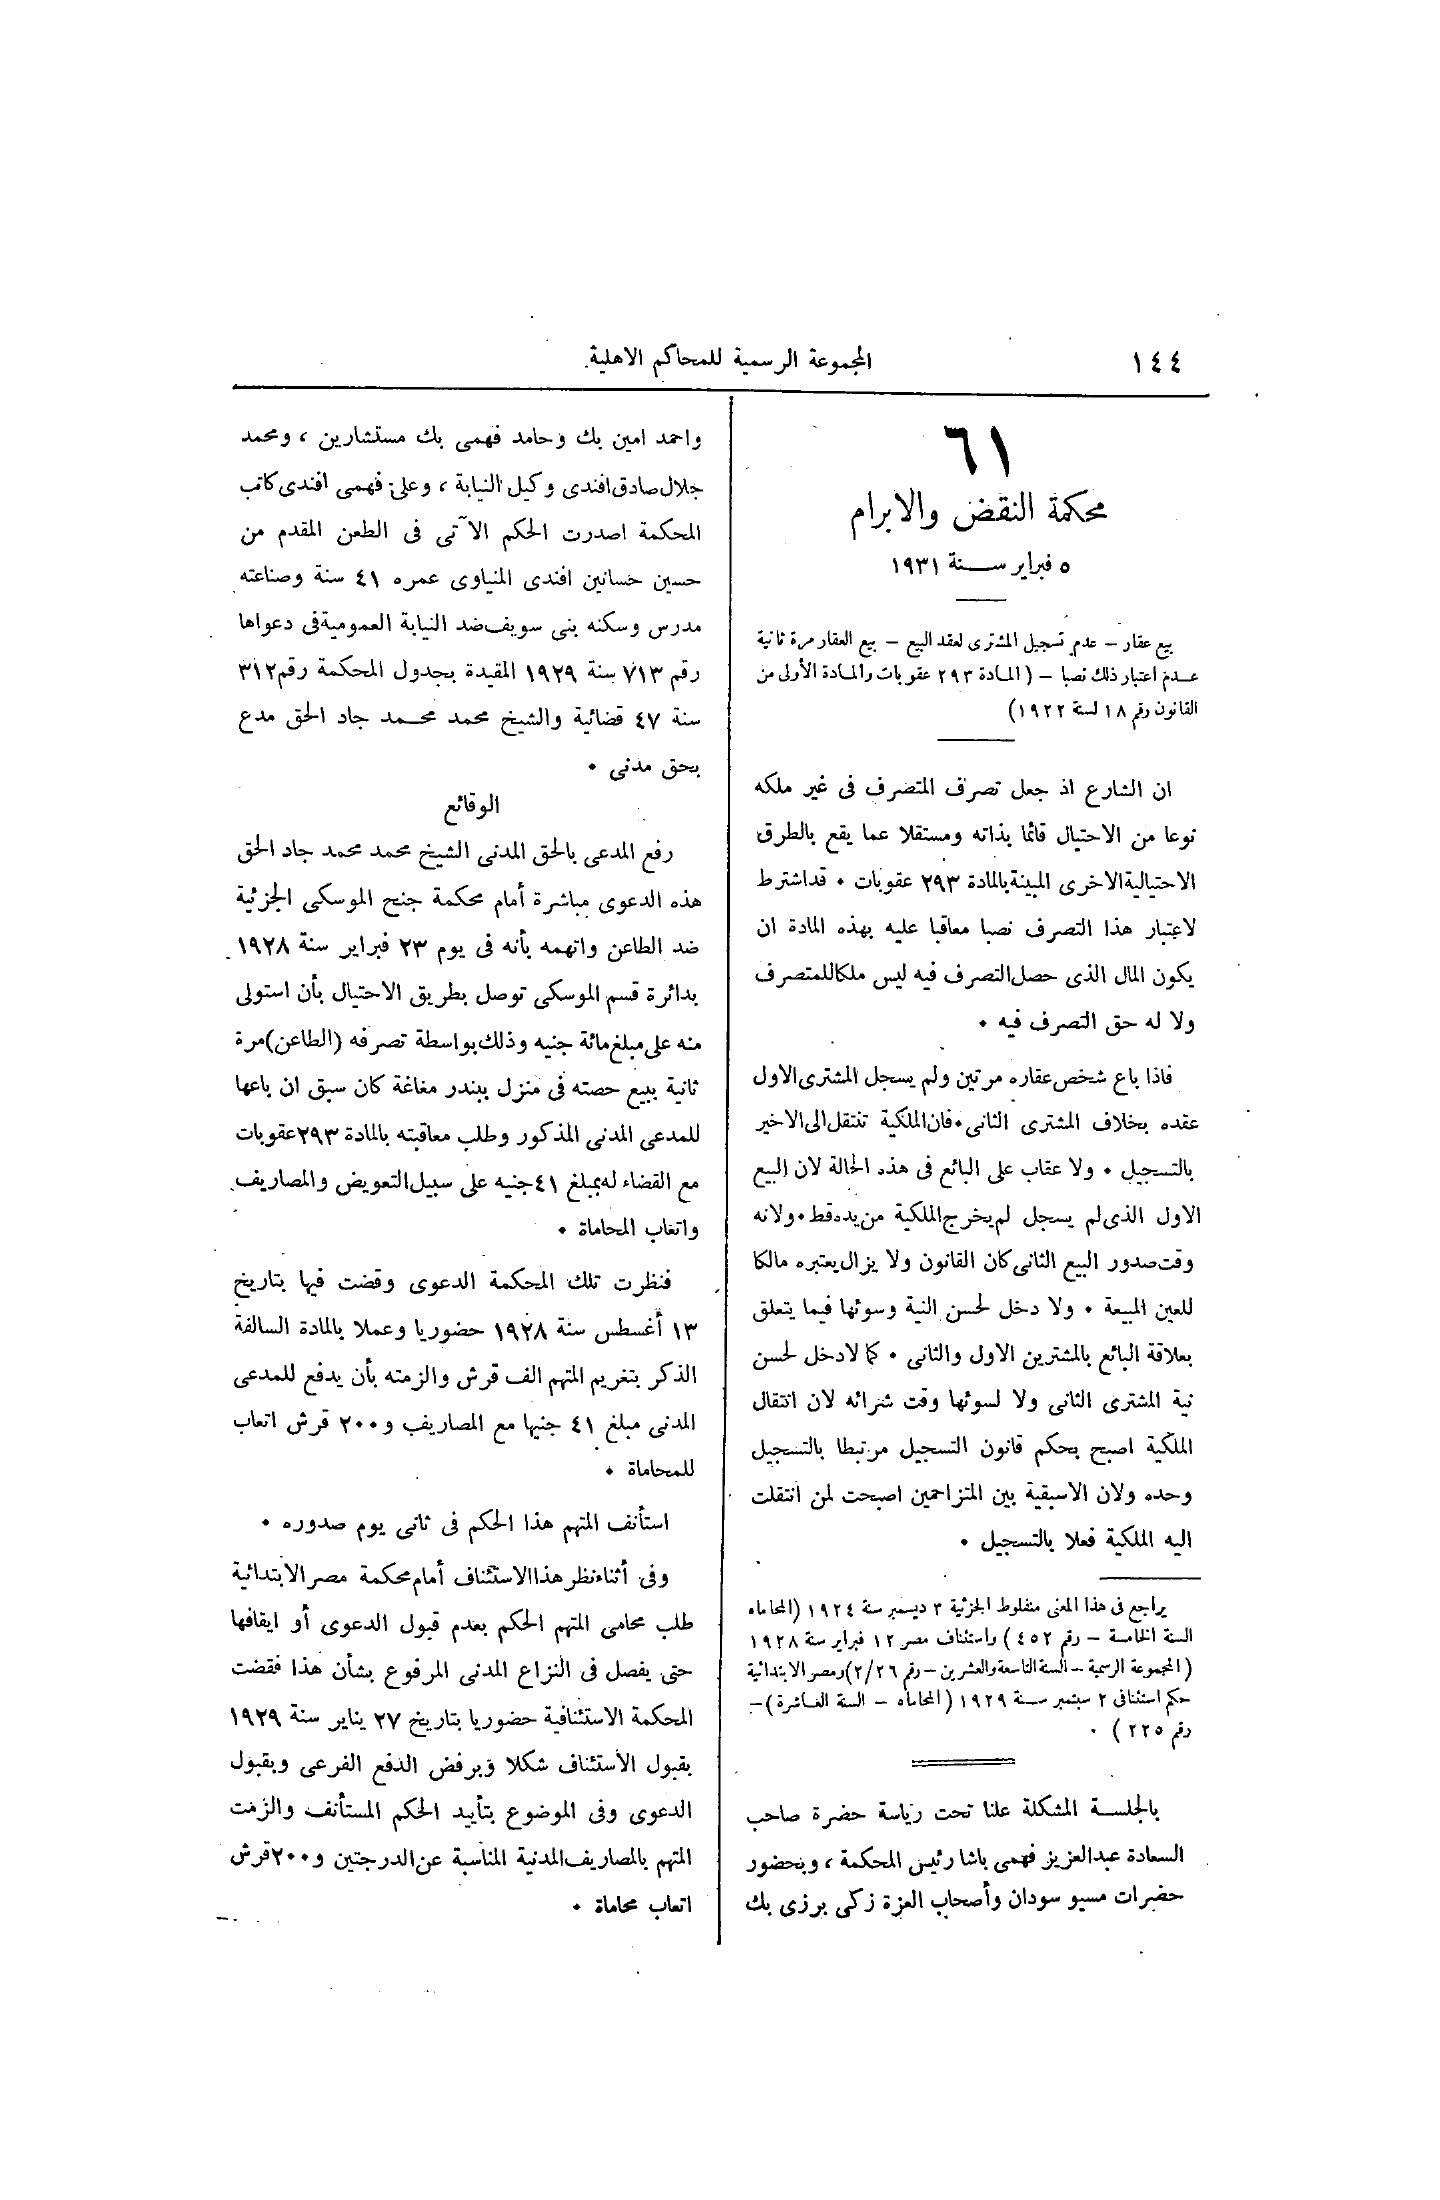 ١٤٤
المجموعة الرسمية للمحاكم الاهلية
٦١
محكمة النقض والابرام
٥ فبراير سنة ١٩٣١
بيع عقار – عدم تسجيل المشترى لعقد البيع – بيع العقار مرة ثانية
عدم اعتبار ذلك نصبا – (المادة ٢٩٣ عقوبات والمادة الأولى من
القانون رقم ١٨ لسنة ١٩٢٢)
ان الشارع اذ جعل تصرف المتصرف فى غير ملكه
نوعا من الاحتيال قائما بذاته ومستقلا عما يقع بالطرق
الاحتيالية الاخرى المبينة بالمادة ٢٩٣ عقوبات ٠ قد اشترط
لاعتبار هذا التصرف نصبا معاقبا عليه بهذه المادة ان
يكون المال الذى حصل التصرف فيه ليس ملكا للمتصرف
ولا له حق التصرف فيه ٠
فاذا باع شخص عقاره مرتين ولم يسجل المشترى الاول
عقده بخلاف المشترى الثانى ٠ فان الملكية تنتقل الى الاخير
بالتسجيل ٠ ولا عقاب على البائع فى هذه الحالة لان البيع
الاول الذى لم يسجل لم يخرج الملكية من يده قط ٠ ولانه
وقت صدور البيع الثانى كان القانون ولا يزال يعتبره مالكا
للعين المبيعة ٠ ولا دخل لحسن النية وسوئها فيما يتعلق
بعلاقة البائع بالمشترين الاول والثانى ٠ كما لا دخل لحسن
نية المشترى الثانى ولا لسوئها وقت شرائه لان انتقال
الملكية اصبح بحكم قانون التسجيل مرتبطا بالتسجيل
وحده ولان الاسبقية بين المتزاحمين اصبحت لمن انتقلت
اليه الملكية فعلا بالتسجيل ٠
يراجع فى هذا المعنى منفلوط الجزئية ٣ ديسمبر سنة ١٩٢٤ (المحاماه
السنة الخامسة – رقم ٤٥٢) واستئناف مصر ١٢ فبراير سنة ١٩٢٨
(المجموعة الرسمية – السنة التاسعة والعشرين – رقم ٢/٢٦) ومصر الابتدائية
حكم استئنافى ٢ سبتمبر سنة ١٩٢٩ (المحاماه – السنة العاشرة) –
رقم ٢٢٥) ٠
بالجلسة المشكلة علنا تحت رياسة حضرة صاحب
السعادة عبد العزيز فهمى باشا رئيس المحكمة ، وبحضور
حضرات مسيو سودان وأصحاب العزة زكى برزى بك
واحمد امين بك وحامد فهمى بك مستشارين ، ومحمد
جلال صادق افندى وكيل النيابة ، وعلى فهمى افندى كاتب
المحكمة اصدرت الحكم الآتى فى الطعن المقدم من
حسين حسانين افندى المنياوى عمره ٤١ سنة وصناعته
مدرس وسكنه بنى سويف ضد النيابة العمومية فى دعواها
رقم ٧١٣ سنة ١٩٢٩ المقيدة بجدول المحكمة رقم ٣١٢
سنة ٤٧ قضائية والشيخ محمد محمد جاد الحق مدع
بحق مدنى ٠
الوقائع
رفع المدعى بالحق المدنى الشيخ محمد محمد جاد الحق
هذه الدعوى مباشرة أمام محكمة جنح الموسكى الجزئية
ضد الطاعن واتهمه بأنه فى يوم ٢٣ فبراير سنة ١٩٢٨
بدائرة قسم الموسكى توصل بطريق الاحتيال بأن استولى
منه على مبلغ مائة جنيه وذلك بواسطة تصرفه (الطاعن) مرة
ثانية ببيع حصته فى منزل ببندر مغاغة كان سبق ان باعها
للمدعى المدنى المذكور وطلب معاقبته بالمادة ٢٩٣ عقوبات
مع القضاء له بمبلغ ٤١ جنيه على سبيل التعويض والمصاريف
واتعاب المحاماة ٠
فنظرت تلك المحكمة الدعوى وقضت فيها بتاريخ
١٣ أغسطس سنة ١٩٢٨ حضوريا وعملا بالمادة السالفة
الذكر بتغريم المتهم الف قرش والزمته بأن يدفع للمدعى
المدنى مبلغ ٤١ جنيها مع المصاريف و ٢٠٠ قرش اتعاب
للمحاماة ٠
استأنف المتهم هذا الحكم فى ثانى يوم صدوره ٠
وفى أثناء نظر هذا الاستئناف أمام محكمة مصر الابتدائية
طلب محامى المتهم الحكم بعدم قبول الدعوى أو ايقافها
حتى يفصل فى النزاع المدنى المرفوع بشأن هذا فقضت
المحكمة الاستئنافية حضوريا بتاريخ ٢٧ يناير سنة ١٩٢٩
بقبول الأستئناف شكلا وبرفض الدفع الفرعى وبقبول
الدعوى وفى الموضوع بتأييد الحكم المستأنف والزمت
المتهم بالمصاريف المدنية المناسبة عن الدرجتين و ٢٠٠ قرش
اتعاب محاماة ٠